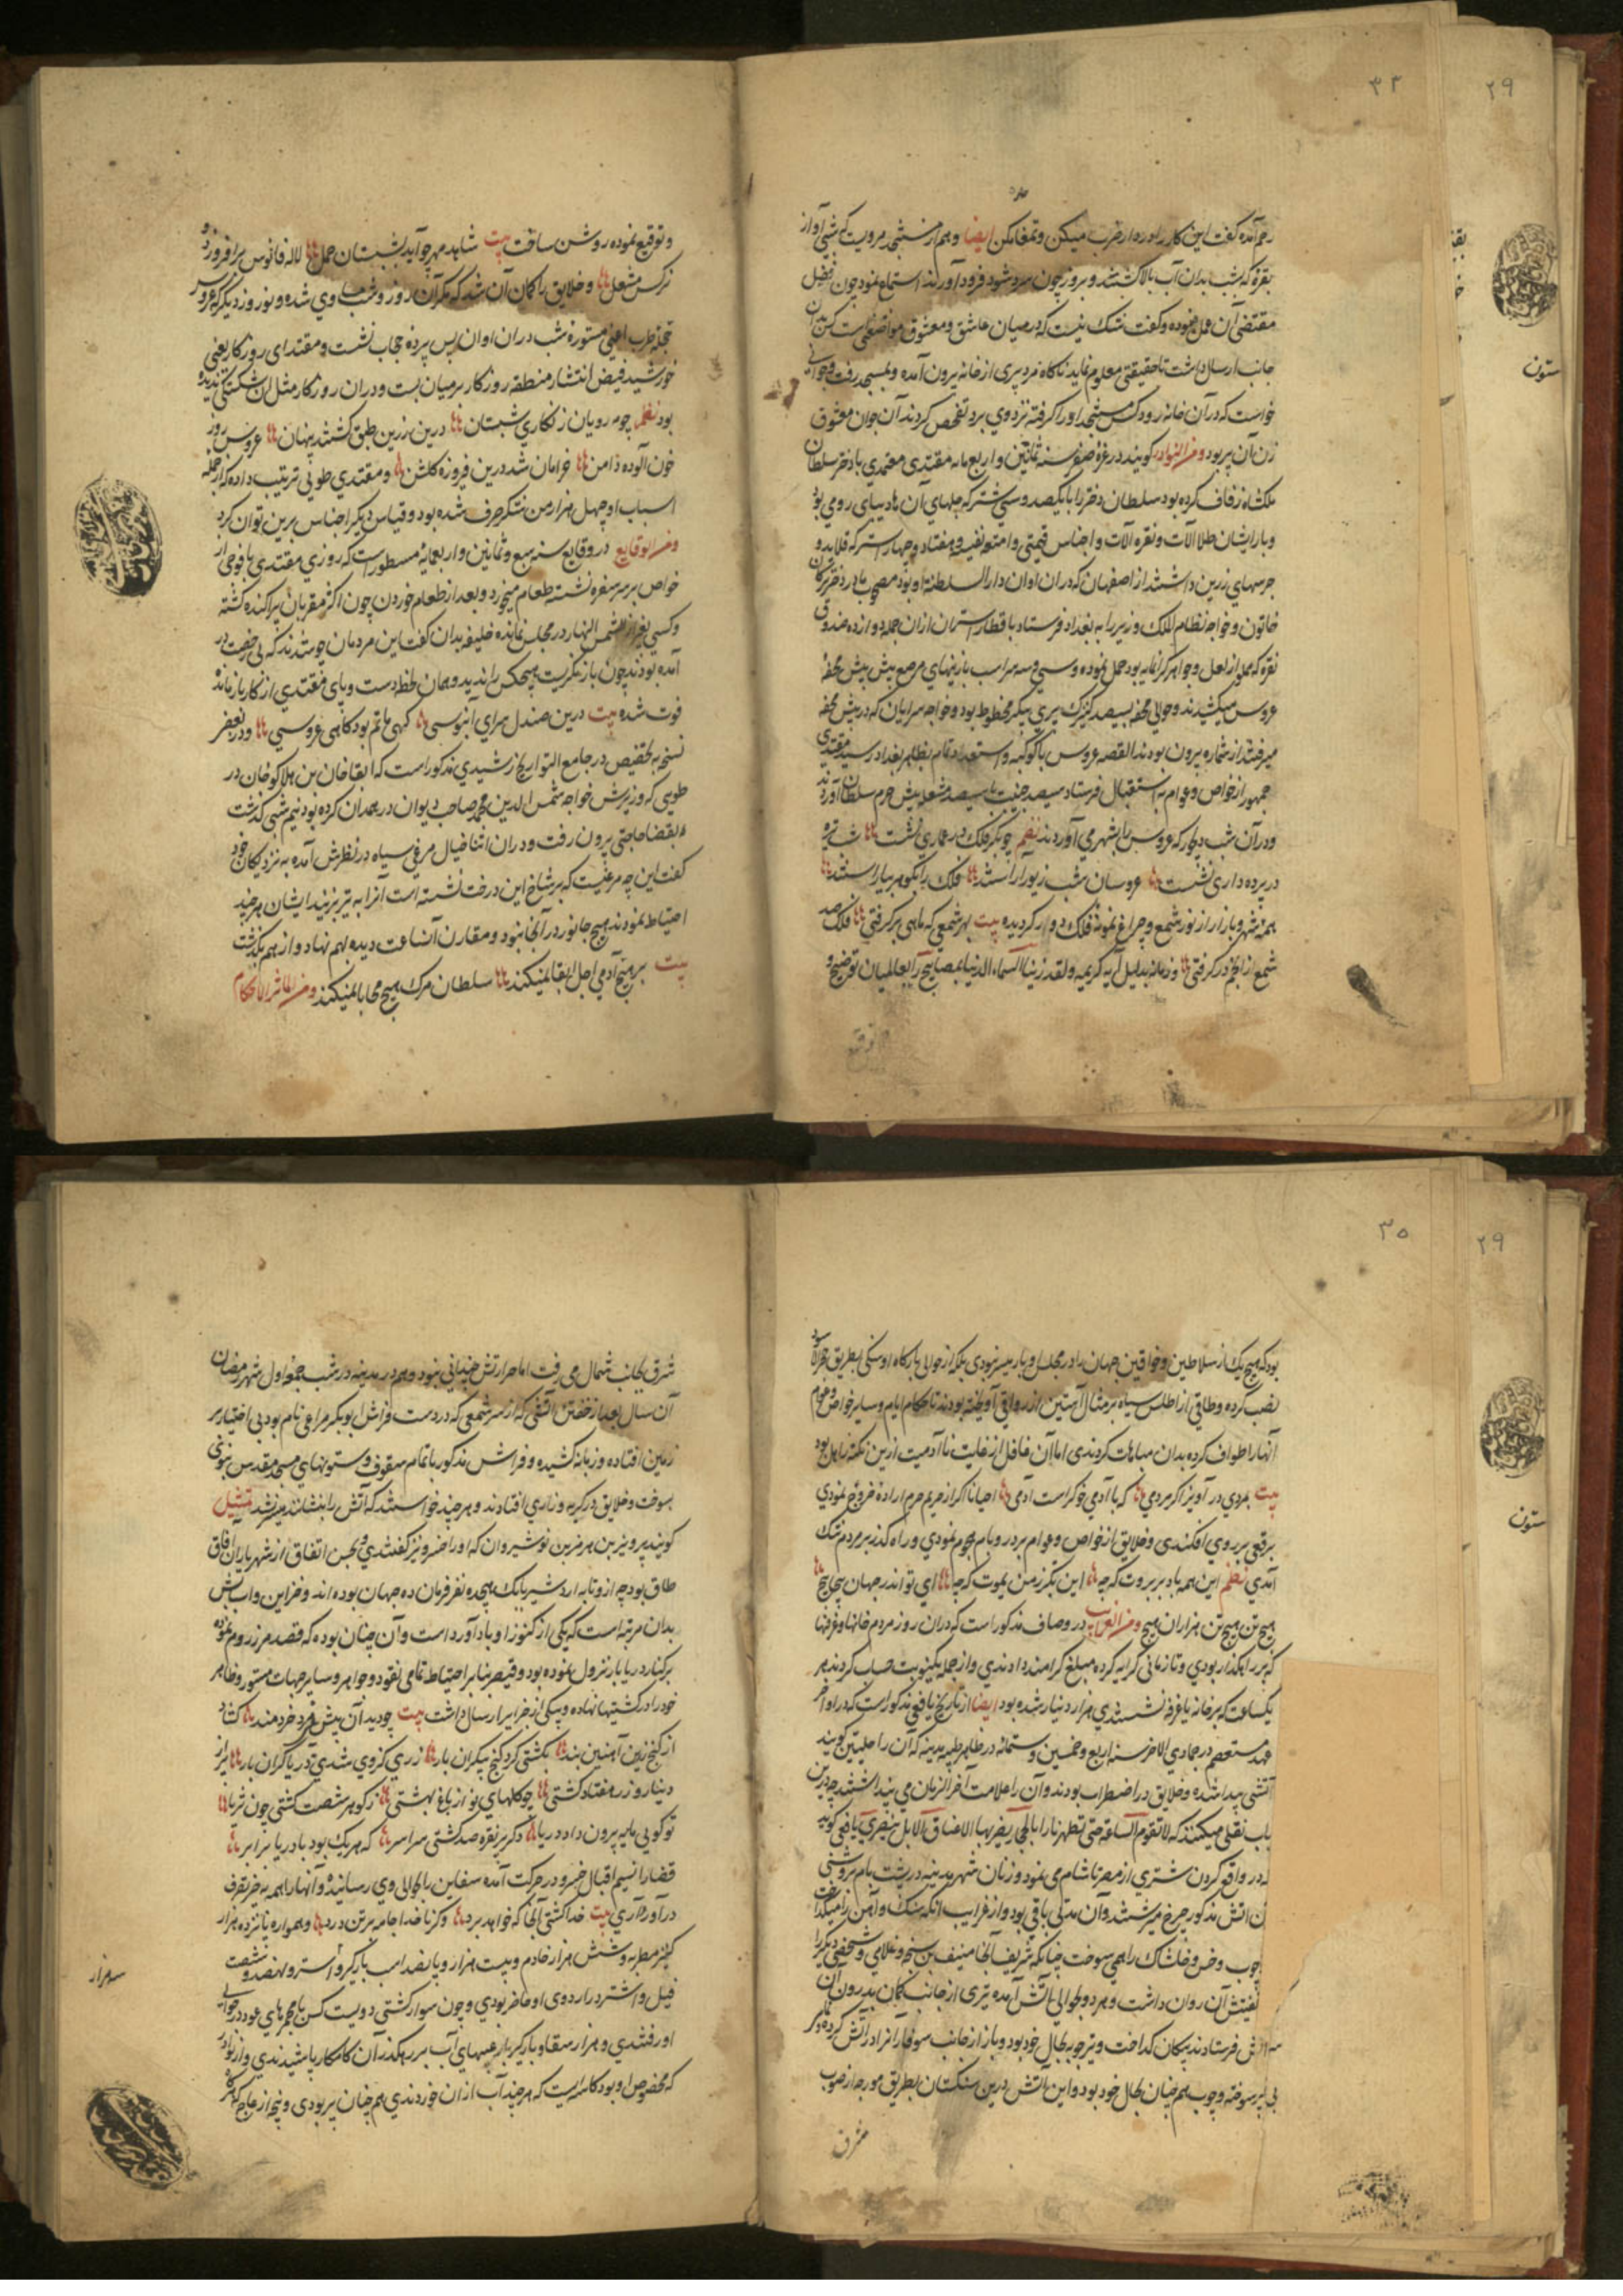 ۳۳
۲۹
رحم آمده گفت این کار را دو بار ضرب میکن و تمغا مکن ایضا و هم از مستنجد مرویست که شبی آواز
بقره که شب بدان آب بالا کشند و بروز چون سرد شود فرود آورند استماع نمود چون فضل
مقتضی آن عمل نموده و گفت شک نیست که در میان عاشق و معشوق مواضعه است کس بدان
جانب ارسال داشت تا حقیقتی معلوم نماید ناگاه مرد پیری از خانه بیرون آمده و بمسجد رفت و جوانی
خواست که در آن خانه رود کس مستنجد او را گرفته نزد وی برد تفحص کردند آن جوان معشوق
زن آن پیر بود ومن النوادر گویند در غره صفر سنه ثمانین و اربعمایه مقتدی معتمدی با دختر سلطان
ملکشاه زفاف کرده بود سلطان دختر را با یکصد و سی شتر که جلهای آن ها دیبای رومی بود
و بار ایشان طلا آلات و نقره آلات و اجناس قیمتی و امتعه نفیسه و هفتاد و چهار استر که قلاید و
جرسهای زرین داشتند از اصفهان که در ان اوان دار السلطنة او بود مصحوب مادر دختر ترکان
خاتون و خواجه نظام الملک وزیر را به بغداد فرستاد با قطار استران ازان جمله دوازده صندوق
نقره که مملو از لعل و جواهر گرانمایه بود حمل نموده و سی و سه سر اسب با زینهای مرصع پیش پیش محفه
عروس میکشیدند و حوالی محفه سیصد کنیزک پری پیکر محظوظ بود و خواجه سرایان که در پیش محفه
میرفتند از شماره بیرون بودند القصه عروس با کوکبه و استعداد تمام بظاهر بغداد رسید مقتدی
جمهور از خواص و عوام به استقبال فرستاد سیصد جنیبت با سیصد مشعله پیش حرم سلطان آوردند
و در آن شب دیجور که عروس را بشهر می آوردند نظم چو بکر فلک در عماری نشست شب تیره
در پرده داری نشست عروسان شب زیور آراستند فلک را بگوهر بیاراستند
همه شهر و بازار از نور شمع و چراغ نمونه فلک دوار گردیده بیت بهر شمعی که ماهی برگرفتی فلک صد
شمع از انجم درگرفتی و زمانه بدلیل آیه کریمه ولقد زینا السماء الدنیا بمصابیح را بعالمیان توضیح و
توقیع
ستون
و توقیع نموده روشن ساخت بیت شاهد مهر چو آید بشبستان حمل لاله فانوس برافروزد و
نرکس مشعل و خلایق را گمان آن شد که مگر آن روز و شب مساوی شده و نوروز دیگر که عروس
حجله طرب اعنی مستوره شب دران اوان پس پرده حجاب نشست و مقتدای روزگار یعنی
خورشید فیض انتشار منطقه روزگار بر میان بست و دران روزگار مثل ان شکستگی ندیده
بود نظم چو مه رویان زنگاری شبستان درین زرین طبق گشتند پنهان عروس روز
خون آلوده دامن خرامان شد درین فیروزه گلشن و مقتدی طویی ترتیب داده که از جمله
اسباب او چهل هزار من شکر صرف شده بود و قیاس دیگر اجناس برین توان کرد
ومن الوقایع در وقایع سنه سبع و ثمانین و اربعمایه مسطور است که روزی مقتدی با فوجی از
خواص بر سر سفره نشسته طعام میخورد و بعد از طعام خوردن چون اکثر مقربان پراکنده گشته
و کسی بغیر از شمس النهار در مجلس نمانده خلیفه بدان گفت این مردمان چه شدند که بی رخصت در
آمده بودند چون باز نگریست هیچکس را ندید و همان لحظه دست و پای مقتدی از کار بازمانده
فوت شده بیت درین صندل سرای آبنوسی گهی ماتم بود گاهی عروسی و در بعضی
نسخ به تخصیص در جامع التواریخ رشیدی مذکور است که ابقا خان بن هلاکو خان در
طویی که وزیرش خواجه شمس الدین محمد صاحب دیوان در همدان کرده بود نیم شبی گذشت
بقضا حاجتی بیرون رفت و دران اثنا خیال مرغی سیاه در نظرش آمده به نزدیکان خود
گفت این چه مرغیست که بر شاخ این درخت نشسته است آنرا به تیر بزنید ایشان هر چند
احتیاط نمودند هیچ جانور در آنجا نبود و مقارن آن ساعت دیده بهم نهاد و از هم بگذشت
بیت بر هیچ آدمی اجل ابقا نمیکند سلطان مرگ هیچ محابا نمیکند ومن المآثر الاحکام
۳۵
۲۹
بود که هیچ یک از سلاطین و خواقین جهان را در مجلس او بار میسر نبودی بلکه از حوالی بارگاه او سنگی بطریق حجرالاسود
نصب کرده و طاقی از اطلس سیاه بر مثال آستین ازان رواق آویخته بودند تا حکام ایام و سایر خواص و عوام
آنها را طواف کرده بدان مباهات کردندی اما آن غافل از غایت ناآدمیت ازین نکته زاهل بود
بیت بمردی در آویز اگر مردمی که با آدمی خوگر است آدمی احیانا اگر از حریم حرم اراده خروج نمودی
برقعی بر روی افکندی و خلایق از خواص و عوام بر در و بام هجوم نمودی و راه گذر بر مردم تنگ
آمدی نظم این همه باد بر بروت که چه این بکر زمن یموت که چه ای تو اندر جهان پیچاپیچ
هیچ تن هیچ تن هزاران هیچ ومن الغرایب در وصاف مذکور است که دران روز مردم خانها و غرفها
که بر راهگذار بودی و تا زمانی کرایه کرده مبلغ گرامند دادندی و از جمله یکنوبت حساب کردند هر
یکساعت که بر خانه یا غرفه نشستندی هزار دنیار شده بود ایضا از تاریخ یافعی مذکور است که در اواخر
عهد مستعصم در جمادی الاخر سنه اربع و خمسین و ستمائه در ظاهر طیبه مدینه که آن را حلیتین گویند
آتشی پیدا شده و خلایق در اضطراب بودند و آن را علامت آخر الزمان می پنداشتند چه درین
باب نقلی میکنند که لا تقوم الساعة حتی تظهر نارا بالحجاز یضئ بها الاعناق الابل ببصری یافعی گوید
در واقع گردن شتری از مصر تا شام می نمود و زنان شهر مدینه در پشت بام بروشنی
آتش مذکور چرخ میرشتند و آن مدتی باقی بود و از غرایب آنکه سنگ و آهن را میگداخت
چوب و خس و خاشاک را همی سوخت چنانکه شریف آنجا منیف بن سنجه و غلامی و شخصی دیگر را
تفتیش آن روان داشت و هر دو بحوالی آتش آمده تیری از جانب کمان بدرون آن
فرستادند پیکان گداخت و تیر چوبه بحال خود بود و باز از جانب سوفار آنرا در آتش کرده
بی پر سوخته و چوب هم چنان بحال خود بود و این آتش درین سنگستان بطریق مورجه از صوب
مشرق
ستون
شرق بجانب شمال می رفت اما حرارتش چندانی نبود و هم در مدینه در شب جمعه اول شهر رمضان
آن سال بعد از خفتن آتشی که از سر شمعی که در دست فراش ابوبکر مراغی نام بود بی اختیار بر
زمین افتاده و زبانه کشیده و فراش مذکور با تمام سقوف و ستونهای مسجد مقدس نبوی
بسوخت و خلایق در گریه و زاری افتادند و هر چند خواستند که آتش را بنشانند میسر نشد تمثیل
گویند پرویز بن هرمز بن نوشیروان که او را خسرو نیز گفتندی و بحسن اتفاق از شهریاران آفاق
طاق بود چه از و تا به اردشیر بابک هیجده نفر فرمان ده جهان بوده اند و خزاین و اسبابش
بدان مرتبه است که یکی از کنوز او باد آورد است و آن چنان بوده که قصد مرز روم نموده
برکنار دریا بار نزول نموده بود و قیصر بنابر احتیاط تمامی نقود و جواهر و سایر جهات مستور و ظاهر
خود را در کشتیها نهاده و بیکی از جزایر ارسال داشت بیت چو دید آن پیش مرد خردمند گشاد
از گنج زرین آهنین بند بکشتی کرد گنج بیکران بار زری کزوی شدی دریا گران بار پر از
دینار و زر هفتاد کشتی چو گلهای نو از باغ بهشتی ز گوهر شصت کشتی چون ثریا
تو گویی مایه بیرون داد دریا دگر پر نقره صد کشتی سراسر که هر یک بود با دریا برابر
قضا را نسیم اقبال خسرو در حرکت آمده سفاین را بحوالی وی رسانیده و آنها را همه به حیز تصرف
در آورد آری بیت خدا کشتی آنجا که خواهد برد وگر ناخدا جامه بر تن درد و همواره پانزده هزار
کنیز مطربه و شش هزار خادم و بیست هزار و پانصد اسب بارگیر و استر و نهصد و شصت
فیل و اشتر در اردوی او حاضر بودی و چون سوار گشتی دویست کس با مجمرهای عود در حوالی
او رفتندی و هزار سقا و بارگیر بار عسهای آب بر رهگذر آن کامکار پاشیدندی و از نوادر
که مخصوص او بود کاسه ایست که هر چند آب ازان خوردندی هم چنان پر بودی و پنجه از عاج که هرگاه